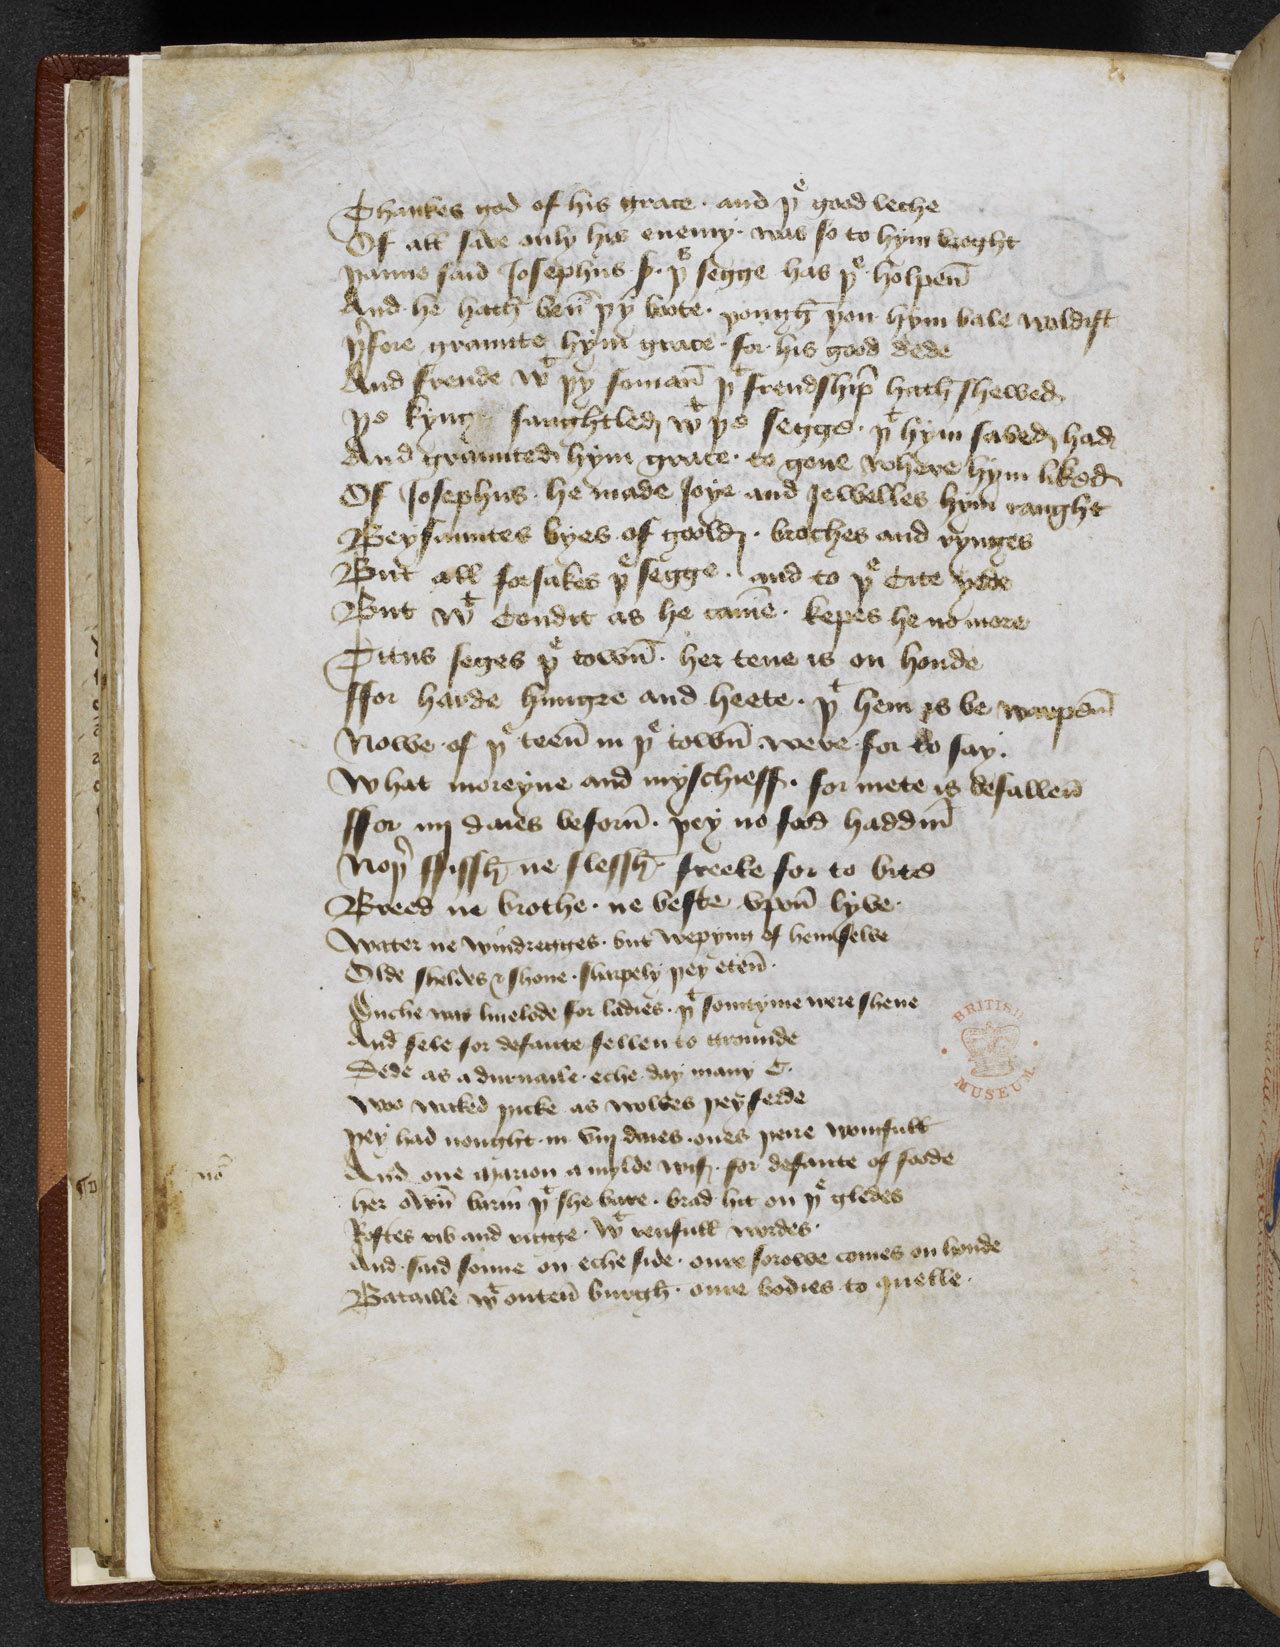 Thankes god of his grace · and þe good leche
Of all save only his enemy · was so to hym broght
þanne said Josephus þis segge has þe holpen̄
And he hath ben̄ þy boote · þough þou hym bale woldist
þfore graunte hym grace · for his good dede
And frende wt þy foman̄ þt frendship hath shewed
þe kyng saughtled wt þe segge · þt hym saved had
And graunted hym grace · to gone where hym liked
Of Josephus · he made Joye and Jewelles hym raught
Beysauntes byes of goold · broches and rynges
But all forsakes þe segge · and to þe Cite yede
But wt Condit as he came · kepes he no more
Titus seges þe town̄ · her tene is on honde
ffor harde hungre and heete · þt hem is be warpen̄
Nowe of þe teen̄ in þe town̄ were for to say ·
What moreyne and myschieff · for mete is befallen̄
ffor iiij daies beforn̄ · þey no food haddin̄
Noþ ffissh ne flessh freeke for to bite
Breed ne brothe · ne beste vpon̄ lyve ·
Water ne wyndregges · but wepyng of hemselve
Olde sheldes & shone · sharpely þey eten̄ ·
Suche was livelode for ladies · þt somtyme were shene
And fele for defaute fellen to grounde
Dede as a durnaile · eche day many C ·
Woo waked þicke as wolves þey ferde
þey had nought in viij daies · ones þeire womfull
And one Marion a mylde wif · for defaute of foode
no
her own̄ barn̄ þt she bare · brad hit on þe gledes
Rostes rib and rigge · wt reufull wordes ·
And said sonne on eche side · oure sorowe comes on honde
Bataille wt outen̄ burgh · oure bodies to quelle ·
BRITISH MUSEUM